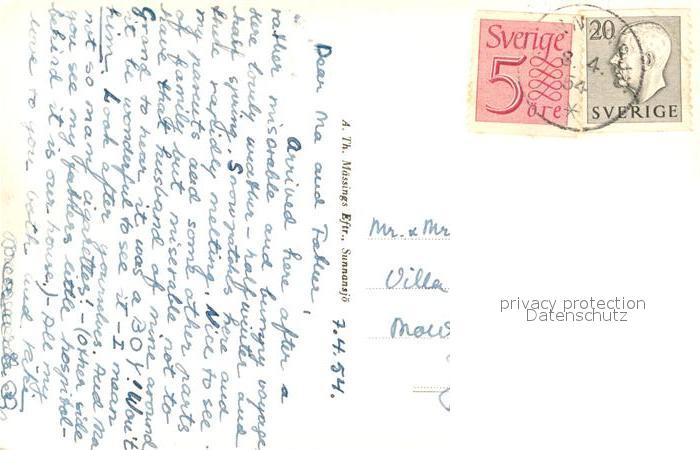 Dear Ma and Father,
7.4.54.
Arrived here after a
rather miserable and bumpy voyage
Here lovely weather - half winter and
half spring. Snow patches here and
there rapidly melting. Nice to see
my parents and some other parts
of family but miserable not to
have that husband of mine around
Grand to hear it was a BOY! Won't
it be wonderful to see it - I mean
him. Look after yourselves. And Ma
not so many cigarettes! - (Other side
you see my fathers little hospital -
behind it is our house.) - All my
love to you both and
A. Th. Mässings Eftr., Sunnansjö
Mr. & Mr
Villa
Sverige
5
öre
20
SVERIGE
54
privacy protection
Datenschutz